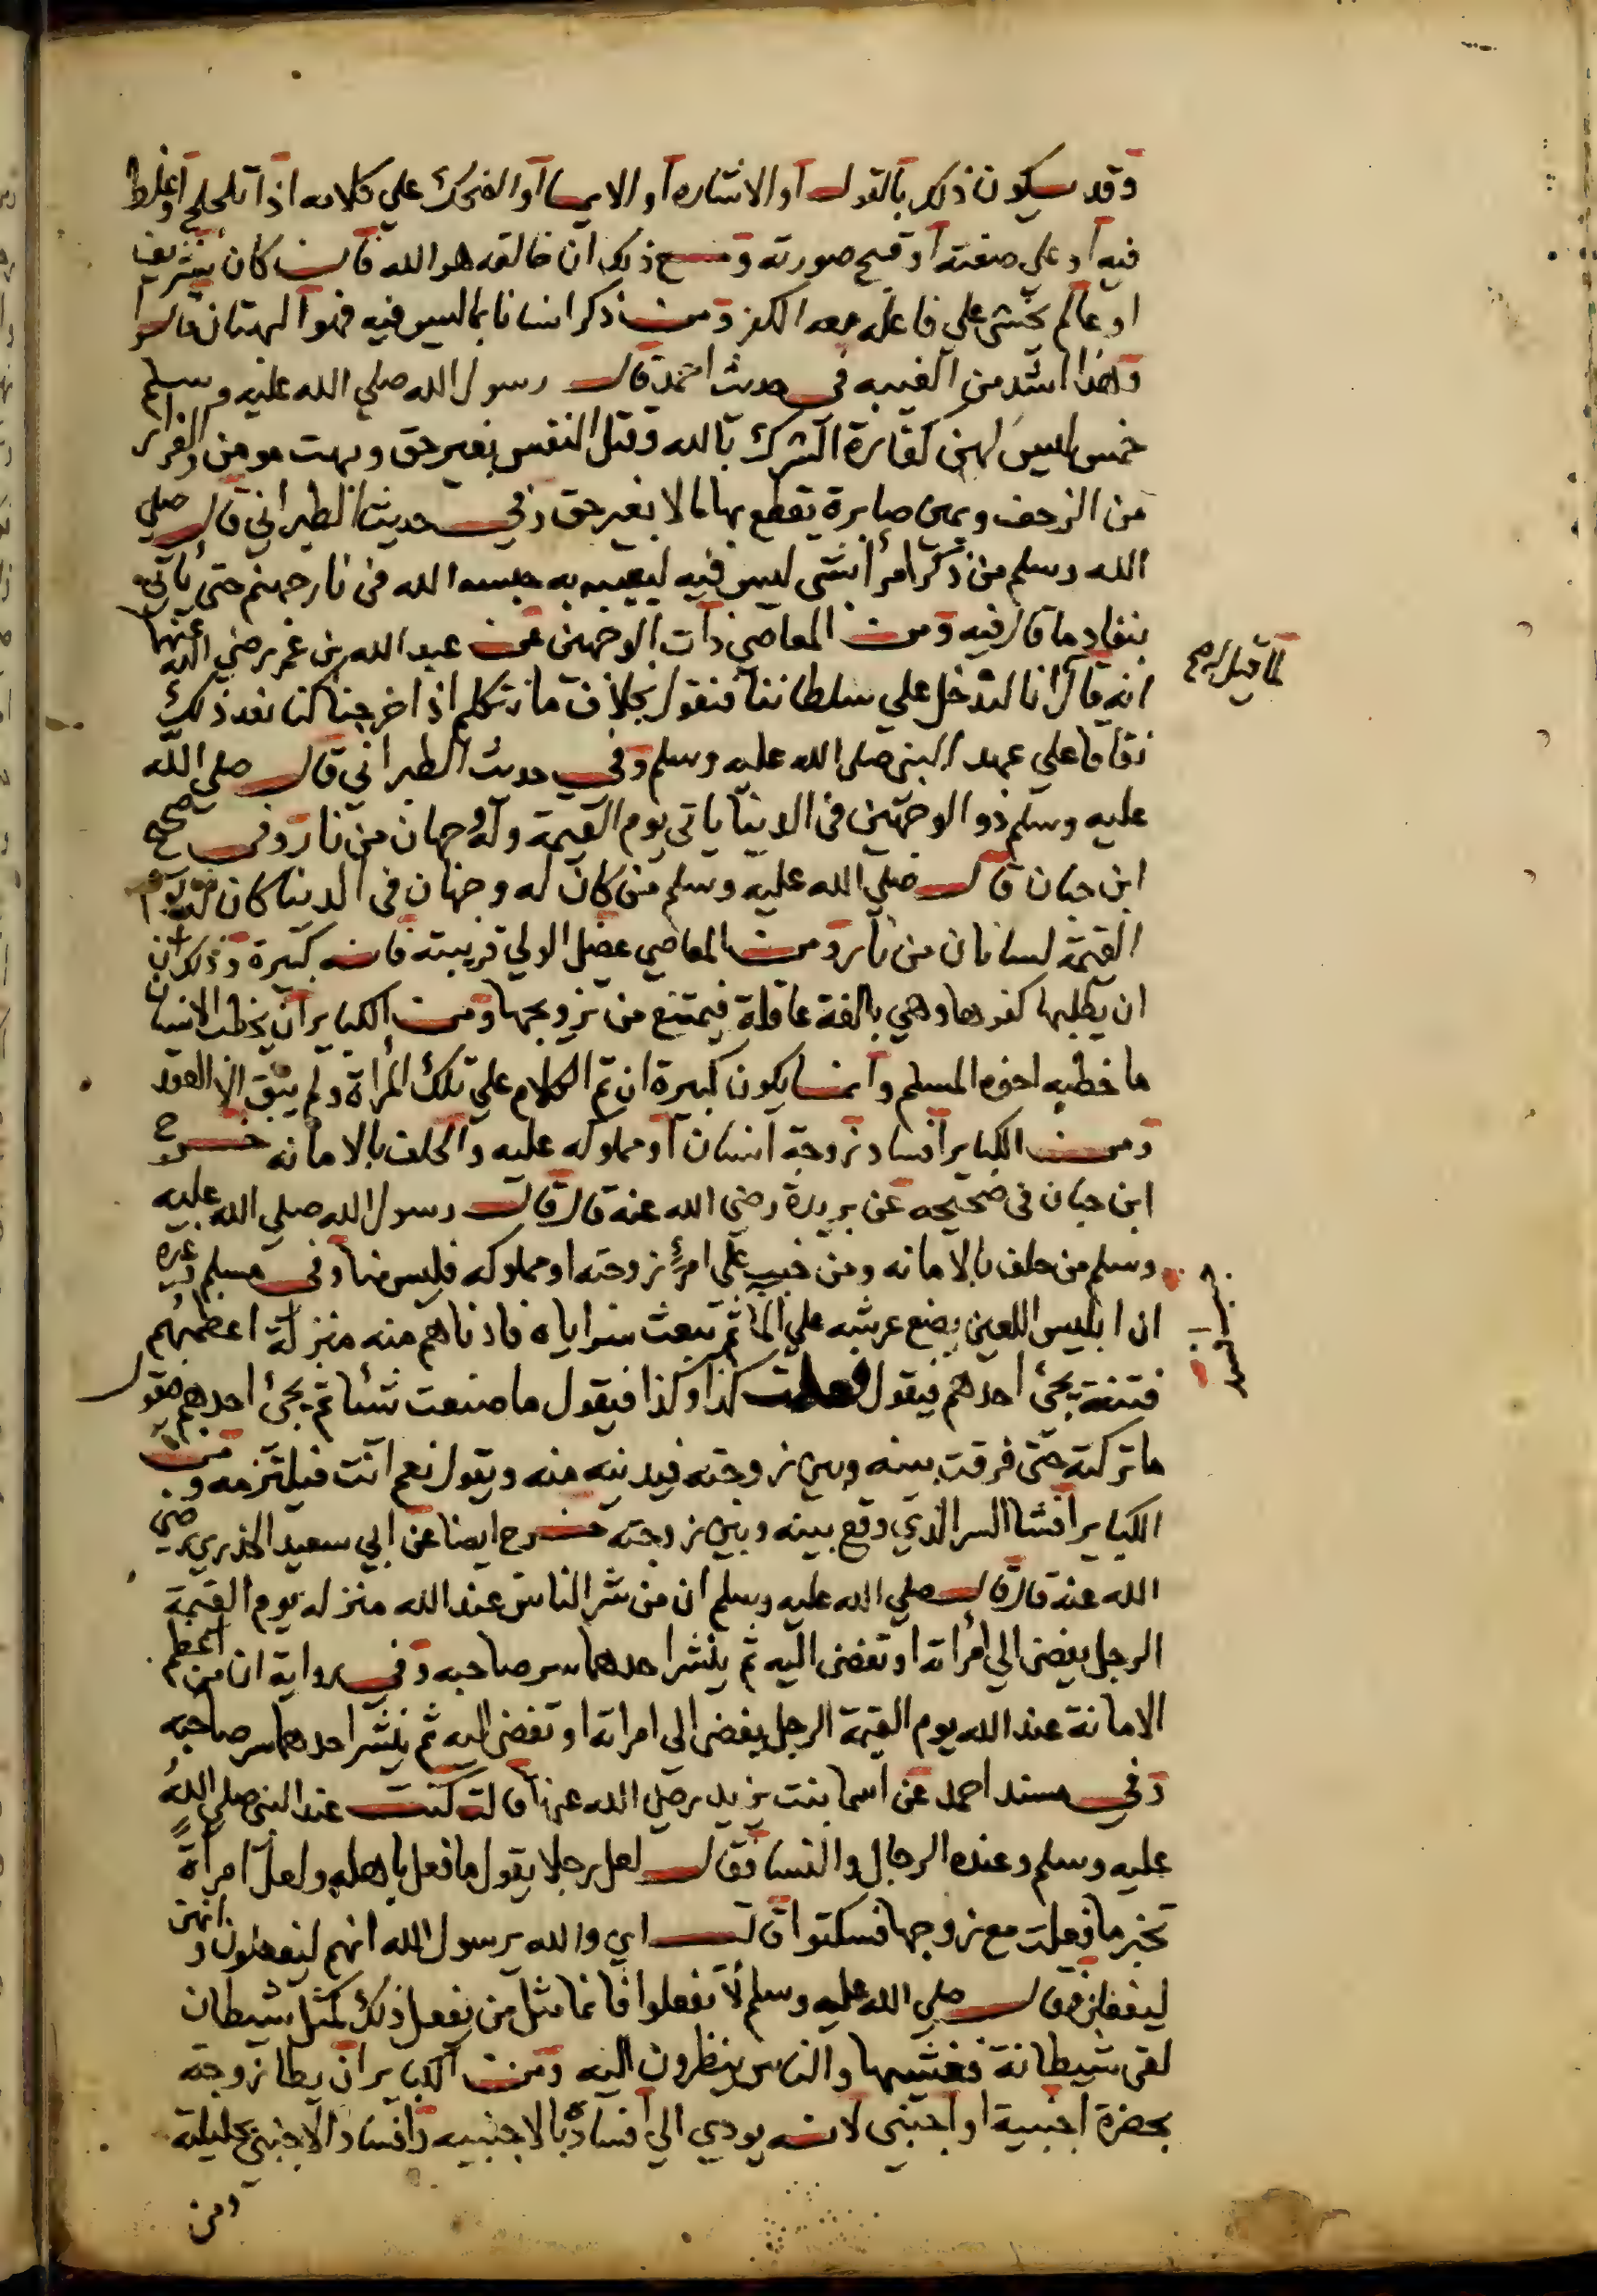 وقد يكون ذلك بالقول او الاشاره او الايما او الضحك علي كلامه اذا تلجلج او غلط
فيه او علي صنعته او قبح صورته ومع ذلك ان خالقه هو الله فان كان شريف
او عالم يخشى علي فاعله معه الكفر ومن ذكر انسانا بما ليس فيه فهو البهتان قالوا
وهذا اشد من الغيبه في حديث احمد قال رسول الله صلي الله عليه وسلم
خمس ليس لهن كفارة الشرك بالله وقتل النفس بغير حق وبهت مومن والفرار
من الزحف ويمين صابرة يقطع بها مالا بغير حق وفي حديث الطبراني قال صلي
الله وسلم من ذكر امرأ بشى ليس فيه ليعيبه به حبسه الله في نار جهنم حتى يأتي
بنفاد ما قال فيه ومن المعاصي ذات الوجهين عن عبد الله بن عمر رضي الله عنهما
لما قيل له
انه قال انا لندخل علي سلطاننا فنقول بخلاف ما نتكلم اذا خرجنا كنا نعد ذلك
نفاقا علي عهد النبي صلى الله عليه وسلم وفي حديث الطبراني قال صلى الله
عليه وسلم ذو الوجهين في الدنيا ياتي يوم القيمة وله وجهان من نار وفي صحيح
ابن حبان قال صلي الله عليه وسلم من كان له وجهان في الدنيا كان له يوم
القيمة لسانان من نار ومن المعاصي عضل الولي قريبته فانه كبيرة وذلك ان
ان يطلبها كفوها وهي بالغة عاقلة فيمتنع من تزويجها ومن الكباير ان يخطب الانسان
ما خطبه اخوه المسلم وانما يكون كبيرة ان تم الكلام علي تلك المرأة ولم يبق الا العقد
ومن الكباير افساد زوجة انسان او مملوكه عليه والحلف بالامانه خرج
ابن حبان في صحيحه عن بريدة رضي الله عنه قال قال رسول الله صلي الله عليه
وسلم من حلف بالامانه ومن خبب علي امرئ زوجته او مملوكه فليس منا وفي مسلم وغيره
ان ابليس اللعين يضع عرشه علي الما ثم يبعث سراياه فادناهم منه منزلة اعظمهم
فتنة يجئ احدهم فيقول فعلت كذا وكذا فيقول ما صنعت شئا ثم يجئ احدهم فيقول
ما تركته حتى فرقت بينه وبين زوجته فيدنيه منه ويقول نعم انت فيلتزمه ومن
الكباير افشا السر الذي وقع بينه وبين زوجته خرج ايضا عن ابي سعيد الخدري رضي
الله عنه قال قال صلي الله عليه وسلم ان من شر الناس عند الله منزله يوم القيمة
الرجل يفضى الي امرأته او تفضى اليه ثم ينشر احدهما سر صاحبه وفي رواية ان من اعظم
الامانة عند الله يوم القيمة الرجل يفضى الى امراته او تفضى اليه ثم ينشر احدهما سر صاحبه
وفي مسند احمد عن اسما بنت يزيد رضي الله عنها قالت كنت عند النبي صلي الله
عليه وسلم وعنده الرجال والنسا فقال لعل رجلا يقول ما فعل باهله ولعل امرأة
تخبر ما فعلت مع زوجها فسكتوا قالت اي والله يرسول الله انهم ليفعلون وانهن
ليفعلن فقال صلي الله عليه وسلم لا تفعلوا فانما مثل من يفعل ذلك كمثل شيطان
لقى شيطانة فغشيها والناس ينظرون اليه ومن الكباير ان يطا زوجته
بحضرة اجنبية او اجنبي لانه يودي الي افساده بالاجنبيه وافساد الاجنبي بحليلته
ومن